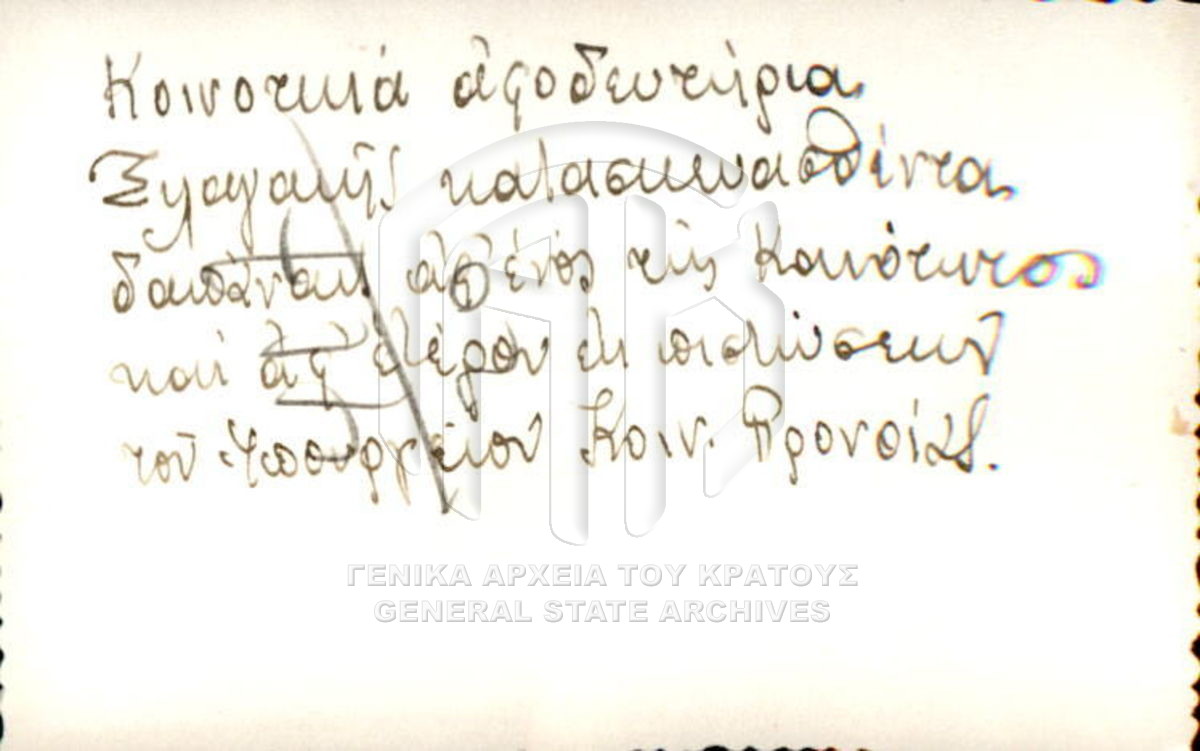 Κοινοτικά ἀφοδευτήρια
Ξυλαγανῆς κατασκευασθέντα
δαπάναις ἀφ' ἑνός τῆς Κοινότητος
καί ἀφ' ἑτέρου ἐκ πιστώσεων
τοῦ Ὑπουργείου Κοιν. Προνοίας.
ΓΕΝΙΚΑ ΑΡΧΕΙΑ ΤΟΥ ΚΡΑΤΟΥΣ
GENERAL STATE ARCHIVES